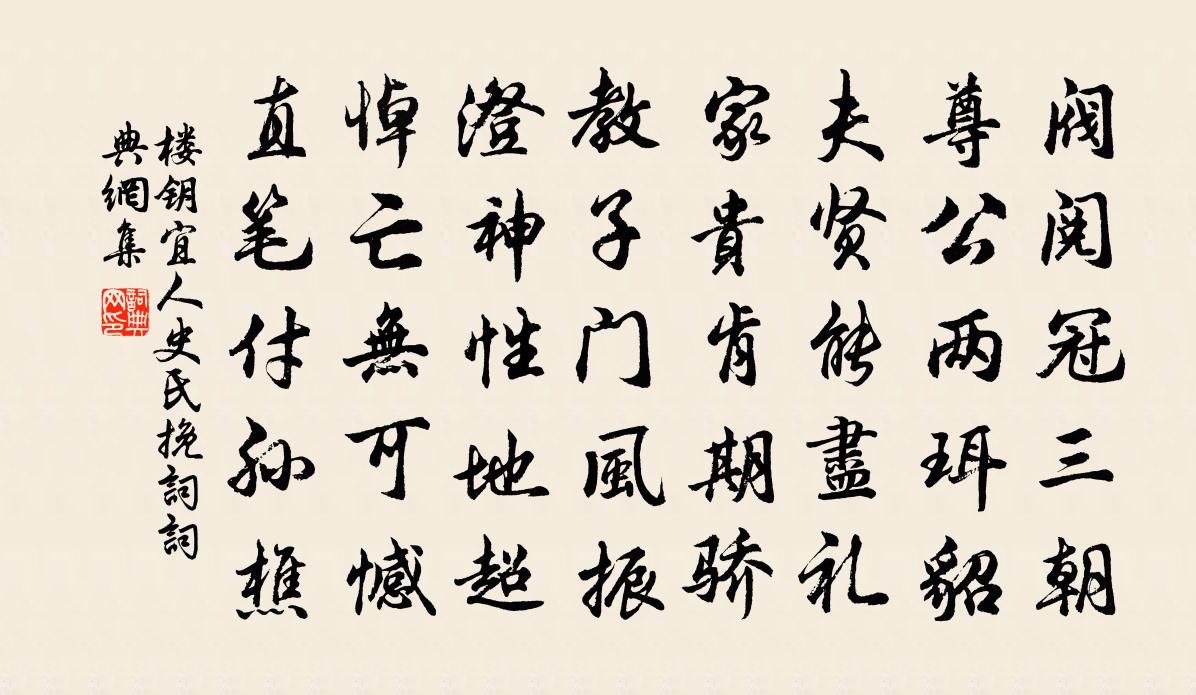 阀阅冠三朝
尊公两珥貂
夫贤能盡礼
家貴肯期骄
教子门風振
澄神性地超
悼亡無可憾
直笔付孙樵
楼钥宜人史氏挽詞詞
典網集
詞典
网印